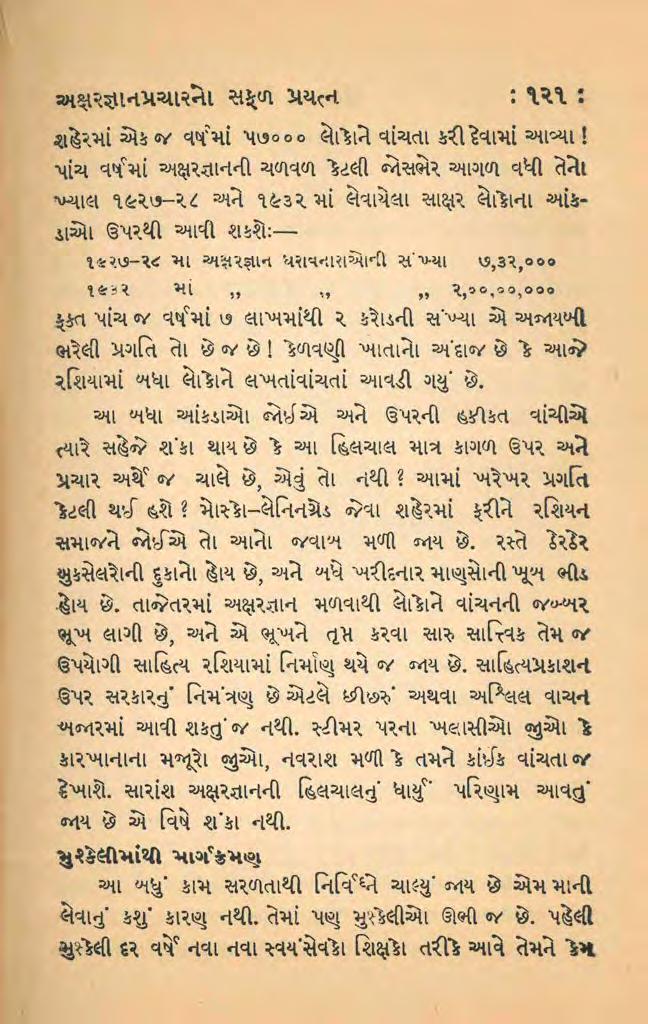 અક્ષરજ્ઞાનપ્રચારનો સફળ પ્રયત્ન : ૧૨૧ :
શહેરમાં એક જ વર્ષમાં ૫૭૦૦૦ લોકોને વાંચતા કરી દેવામાં આવ્યા !
પાંચ વર્ષમાં અક્ષરજ્ઞાનની ચળવળ કેટલી જોસભેર આગળ વધી તેનો
ખ્યાલ ૧૯૨૭–૨૮ અને ૧૯૩૨ માં લેવાયેલા સાક્ષર લોકોના આંક-
ડાઓ ઉપરથી આવી શકશેઃ—
૧૯૨૭–૨૮ મા અક્ષરજ્ઞાન ધરાવનારાઓની સંખ્યા ૭,૩૨,૦૦૦
૧૯૩૨ માં ,, ,, ,, ૨,૦૦,૦૦,૦૦૦
ફક્ત પાંચ જ વર્ષમાં ૭ લાખમાંથી ૨ કરોડની સંખ્યા એ અજાયબી
ભરેલી પ્રગતિ તો છે જ છે ! કેળવણી ખાતાનો અંદાજ છે કે આજે
રશિયામાં બધા લોકોને લખતાંવાંચતાં આવડી ગયું છે.
આ બધા આંકડાઓ જોઈએ અને ઉપરની હકીકત વાંચીએ
ત્યારે સહેજે શંકા થાય છે કે આ હિલચાલ માત્ર કાગળ ઉપર અને
પ્રચાર અર્થે જ ચાલે છે, એવું તો નથી ? આમાં ખરેખર પ્રગતિ
કેટલી થઈ હશે ? મોસ્કો–લેનિનગ્રેડ જેવા શહેરમાં ફરીને રશિયન
સમાજને જોઈએ તો આનો જવાબ મળી જાય છે. રસ્તે ઠેરઠેર
બુકસેલરોની દુકાનો હોય છે, અને બધે ખરીદનાર માણસોની ખૂબ ભીડ
હોય છે. તાજેતરમાં અક્ષરજ્ઞાન મળવાથી લોકોને વાંચનની જબ્બર
ભૂખ લાગી છે, અને એ ભૂખને તૃપ્ત કરવા સારુ સાત્ત્વિક તેમ જ
ઉપયોગી સાહિત્ય રશિયામાં નિર્માણ થયે જ જાય છે. સાહિત્યપ્રકાશન
ઉપર સરકારનું નિમંત્રણ છે એટલે છીછરું અથવા અશ્લિલ વાચન
બજારમાં આવી શકતું જ નથી. સ્ટીમર પરના ખલાસીઓ જુઓ કે
કારખાનાના મજૂરો જુઓ, નવરાશ મળી કે તમને કાંઈક વાંચતા જ
દેખાશે. સારાંશ અક્ષરજ્ઞાનની હિલચાલનું ધાર્યું પરિણામ આવતું
જાય છે એ વિષે શંકા નથી.
મુશ્કેલીમાંથી માર્ગક્રમણ
આ બધું કામ સરળતાથી નિર્વિઘ્ને ચાલ્યું જાય છે એમ માની
લેવાનું કશું કારણ નથી. તેમાં પણ મુશ્કેલીઓ ઊભી જ છે. પહેલી
મુશ્કેલી દર વર્ષે નવા નવા સ્વયંસેવકો શિક્ષકો તરીકે આવે તેમને કેમ